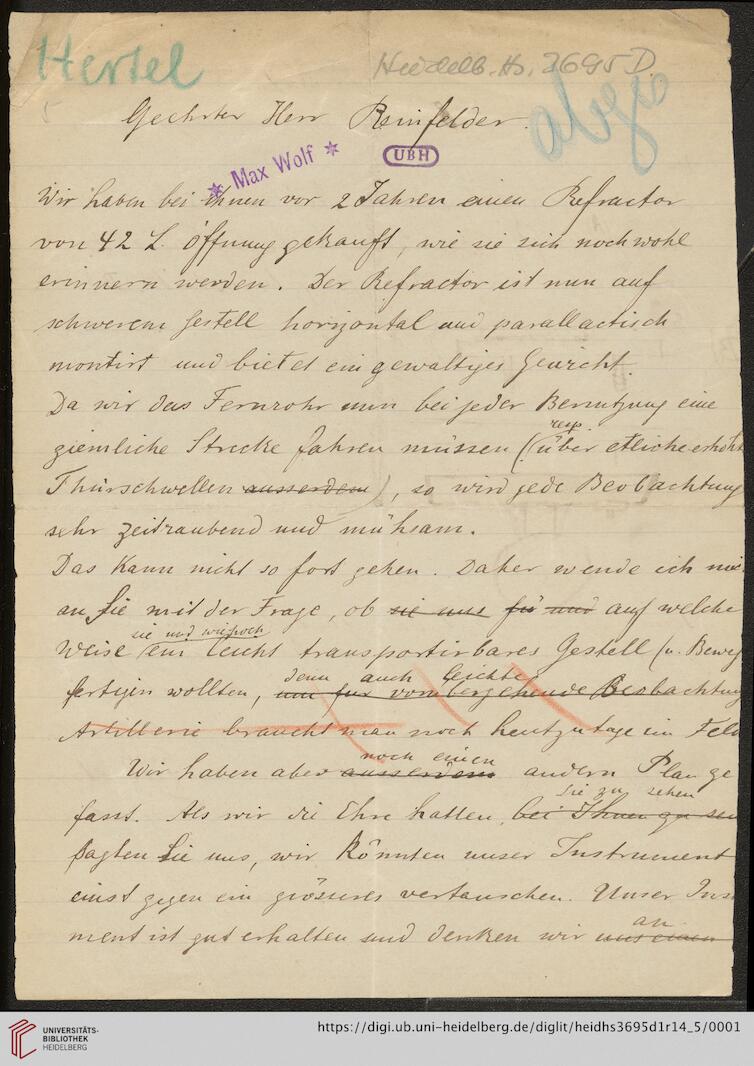 Hertel
Heidelb. Hs. 3695 D.
abge
5
Geehrter Herr Reinfelder.
* Max Wolf *
UBH
Wir haben bei Ihnen vor 2 Jahren einen Refractor
von 42 L. Öffnung gekauft, wie sie sich noch wohl
erinnern werden. Der Refractor ist nun auf
schwerem Gestell horizontal und parallactisch
montirt und bietet ein gewaltiges Gewicht.
Da wir das Fernrohr nun bei jeder Benutzung eine
resp.
ziemliche Strecke fahren müssen (über etliche erhöht
Thürschwellen ausserdem), so wird jede Beobachtung
sehr zeitraubend und mühsam.
Das kann nicht so fort gehen. Daher wende ich mi
an Sie mit der Frage, ob sie uns für und auf welche
sie und wie hoch
Weise ein leicht transportirbares Gestell (u. Beweg
denn auch leichte
fertigen wollten, um für vorübergehende Beobachtung
Artillerie braucht man noch heutzutage im Fel
noch einen
Wir haben aber ausserdem andern Plan ge
Sie zu sehen
fasst. Als wir die Ehre hatten, bei Ihnen zu sei
sagten Sie uns, wir könnten unser Instrument
einst gegen ein grösseres vertauschen. Unser Ins
an
ment ist gut erhalten und denken wir uns einen
UNIVERSITÄTS-
BIBLIOTHEK
HEIDELBERG
https://digi.ub.uni-heidelberg.de/diglit/heidhs3695d1r14_5/0001